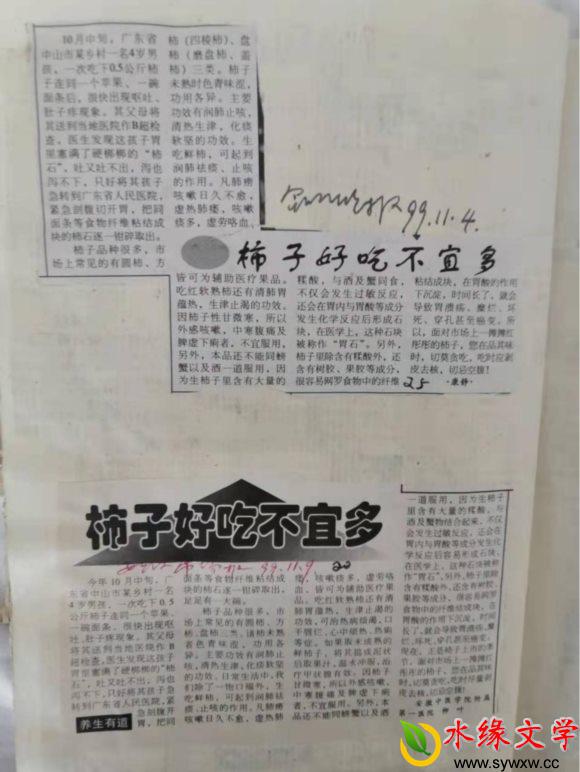 10月中旬，广东省
中山市某乡村一名4岁男
孩，一次吃下0.5公斤柿
子连同一个苹果、一碗
面条后，很快出现呕吐、
肚子疼现象。其父母将
其送到当地医院作B超检
查，医生发现这孩子胃
里塞满了硬梆梆的“柿
石”，吐又吐不出，泻也
泻不下，只好将其孩子
急转到广东省人民医院，
紧急剖腹切开胃，把同
面条等食物纤维粘结成
块的柿石逐一钳碎取出。
柿子品种很多，市
场上常见的有圆柿、方
柿（四棱柿）、盘
柿（磨盘柿、盖
柿）三类。柿子
未熟时色青味涩，
功用各异。主要
功效有润肺止咳，
清热生津，化痰
软坚的功效。生
吃鲜柿，可起到
润肺祛痰、止咳
的作用。凡肺痨
咳嗽日久不愈，
虚热肺痿，咳嗽
痰多，虚劳咯血、
99.11.4.
柿子好吃不宜多
皆可为辅助医疗果品。
吃红软熟柿还有清肺胃
蕴热，生津止渴的功效。
因柿子性甘微寒，所以
外感咳嗽，中寒腹痛及
脾虚下痢者，不宜服用。
另外，本品还不能同螃
蟹以及酒一道服用，因
为生柿子里含有大量的
鞣酸，与酒及蟹同食，
不仅会发生过敏反应，
还会在胃内与胃酸等成分
发生化学反应后形成石
块，在医学上，这种石块
被称作“胃石”。另外，
柿子里除含有鞣酸外，还
含有树胶、果胶等成分，
很容易网罗食物中的纤维
粘结成块，在胃酸的作用
下沉淀，时间长了，就会
导致胃溃疡、糜烂、坏
死、穿孔甚至癌变。所
以，面对市场上一摊摊红
彤彤的柿子，您在品其味
时，切莫贪吃，吃时应剥
皮去核，切忌空腹！
·康静·
25
柿子好吃不宜多
99.11.9
22
今年10月中旬，广
东省中山市某乡村一名
4岁男孩，一次吃下0.5
公斤柿子连同一个苹果、
一碗面条，很快出现呕
吐、肚子疼现象。其父母
将其送到当地医院作B
超检查，医生发现这孩子
胃里塞满了硬梆梆的“柿
石”，吐又吐不出，泻也
泻不下，只好将其孩子急
转到广东省人民医院，
紧急剖腹开
胃，把同
养生有道
面条等食物纤维粘结成块
的柿石逐一钳碎取出，
足足有一大碗。
柿子品种很多，市
场上常见的有圆柿、方
柿、盘柿三类。诸柿未熟
者色青味涩，功用各
异。主要功效有润肺止
咳，清热生津，化痰软坚
的功效。日常生活中，我
们除了一饱口福外，生
吃鲜柿，可起到润肺祛
痰、止咳的作用。凡肺痨
咳嗽日久不愈，虚热肺
痿，咳嗽痰多，虚劳咯
血，皆可为辅助医疗果
品。吃红软熟柿还有清
肺胃蕴热，生津止渴的
功效，可治热病烦渴、口
干唇烂、心中烦热、热痢
等症。如果取未成熟的
鲜柿子，将其捣成泥状
后取果汁，温水冲服，治
疗甲状腺有效。因柿子
甘微寒，所以外感咳嗽、
中寒腹痛及脾虚下痢
者，不宜服用。另外，本
品还不能同螃蟹以及酒
一道服用，因为生柿子
里含有大量的鞣酸，与
酒及蟹物结合起来，不仅
会发生过敏反应，还会在
胃内与胃酸等成分发生化
学反应后容易形成石块，
在医学上，这种石块被称
作“胃石”。另外，柿子里
除含有鞣酸外，还含有树
胶、果胶等成分，很容易网罗
食物中的纤维粘结成块，在
胃酸的作用下沉淀，时间长
了，就会导致胃溃疡、糜
烂、坏死、穿孔甚至癌变。
现在，正是柿子上市的季
节。面对市场上一摊摊红彤
彤的柿子，您在品其味时，
切莫贪吃，吃时尽量剥
皮去核，切忌空腹！
安徽中医学院附属
第一医院 柳叶
水缘文学
www.sywxw.cc